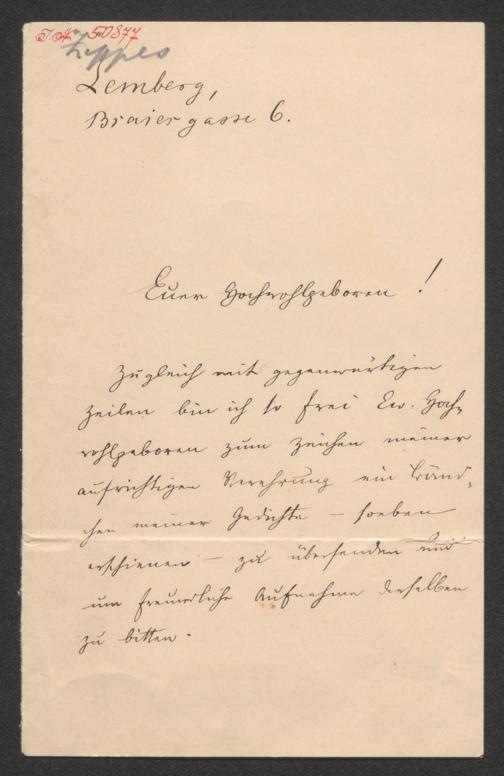 J.N. 50877
Lemberg,
Braiergasse 6.
Euer Hochwohlgeboren!
Zugleich mit gegenwärtigen
Zeilen bin ich so frei Ew. Hoch-
wohlgeboren zum Zeichen meiner
aufrichtigen Verehrung ein Bänd-
chen meiner Gedichte – soeben
erschienen – zu übersenden und
um freundliche Aufnahme derselben
zu bitten.